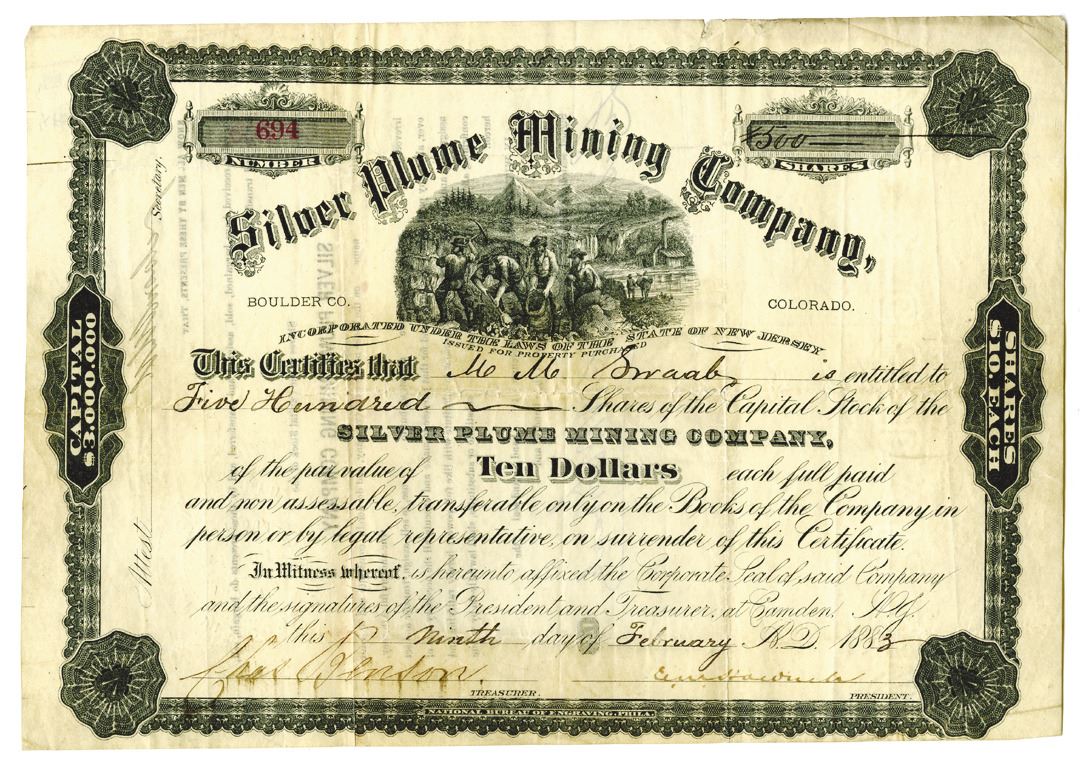 694
NUMBER
500
SHARES
Silver Plume Mining Company,
BOULDER CO.
COLORADO.
INCORPORATED UNDER THE LAWS OF THE STATE OF NEW JERSEY
ISSUED FOR PROPERTY PURCHASED
This Certifies that M M Swaab is entitled to
Five Hundred Shares of the Capital Stock of the
SILVER PLUME MINING COMPANY,
of the par value of Ten Dollars each full paid
and non assessable, transferable only on the Books of the Company in
person or by legal representative, on surrender of this Certificate.
In Witness whereof, is hereunto affixed the Corporate Seal of said Company
and the signatures of the President and Treasurer, at Camden, N.J.
this Ninth day of February A.D. 1883
Chas Benson.
TREASURER.
PRESIDENT.
NATIONAL BUREAU OF ENGRAVING, PHILA.
CAPITAL
$3.000.000
SHARES
$10. EACH
Attest
Secretary.